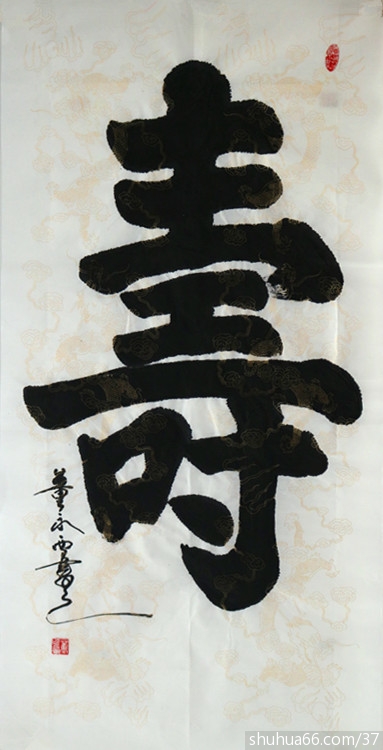 壽
董永西書
shuhua66.com/37